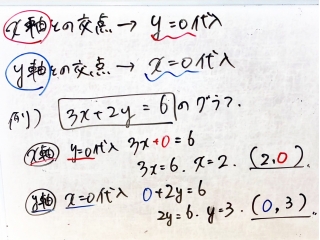 x軸との交点 → y=0代入
y軸との交点 → x=0代入
例) 3x+2y=6 のグラフ.
x軸 y=0代入 3x+0=6
3x=6. x=2. (2,0)
y軸 x=0代入 0+2y=6
2y=6. y=3. (0,3)